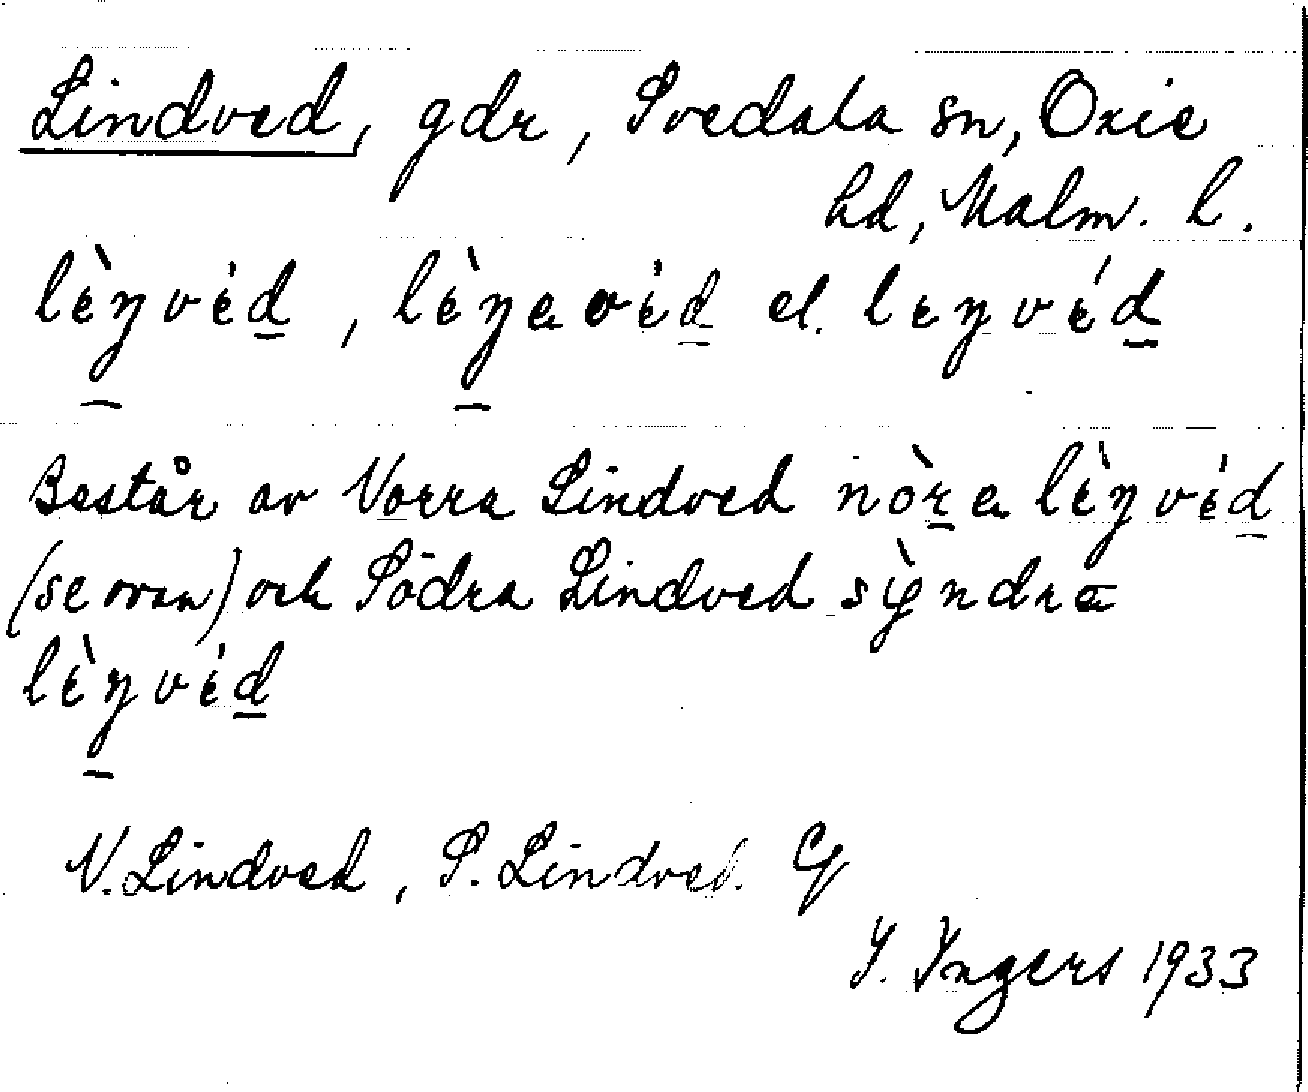 Lindved, gdr, Svedala sn, Oxie
hd, Malm. l.
lèŋvéd, lèŋavéd el. leŋvéd
Består av Norra Lindved nòra lèŋvéd
(se ovan) och Södra Lindved sỳndra
lèŋvéd
N. Lindved, S. Lindved. G
I. Ingers 1933